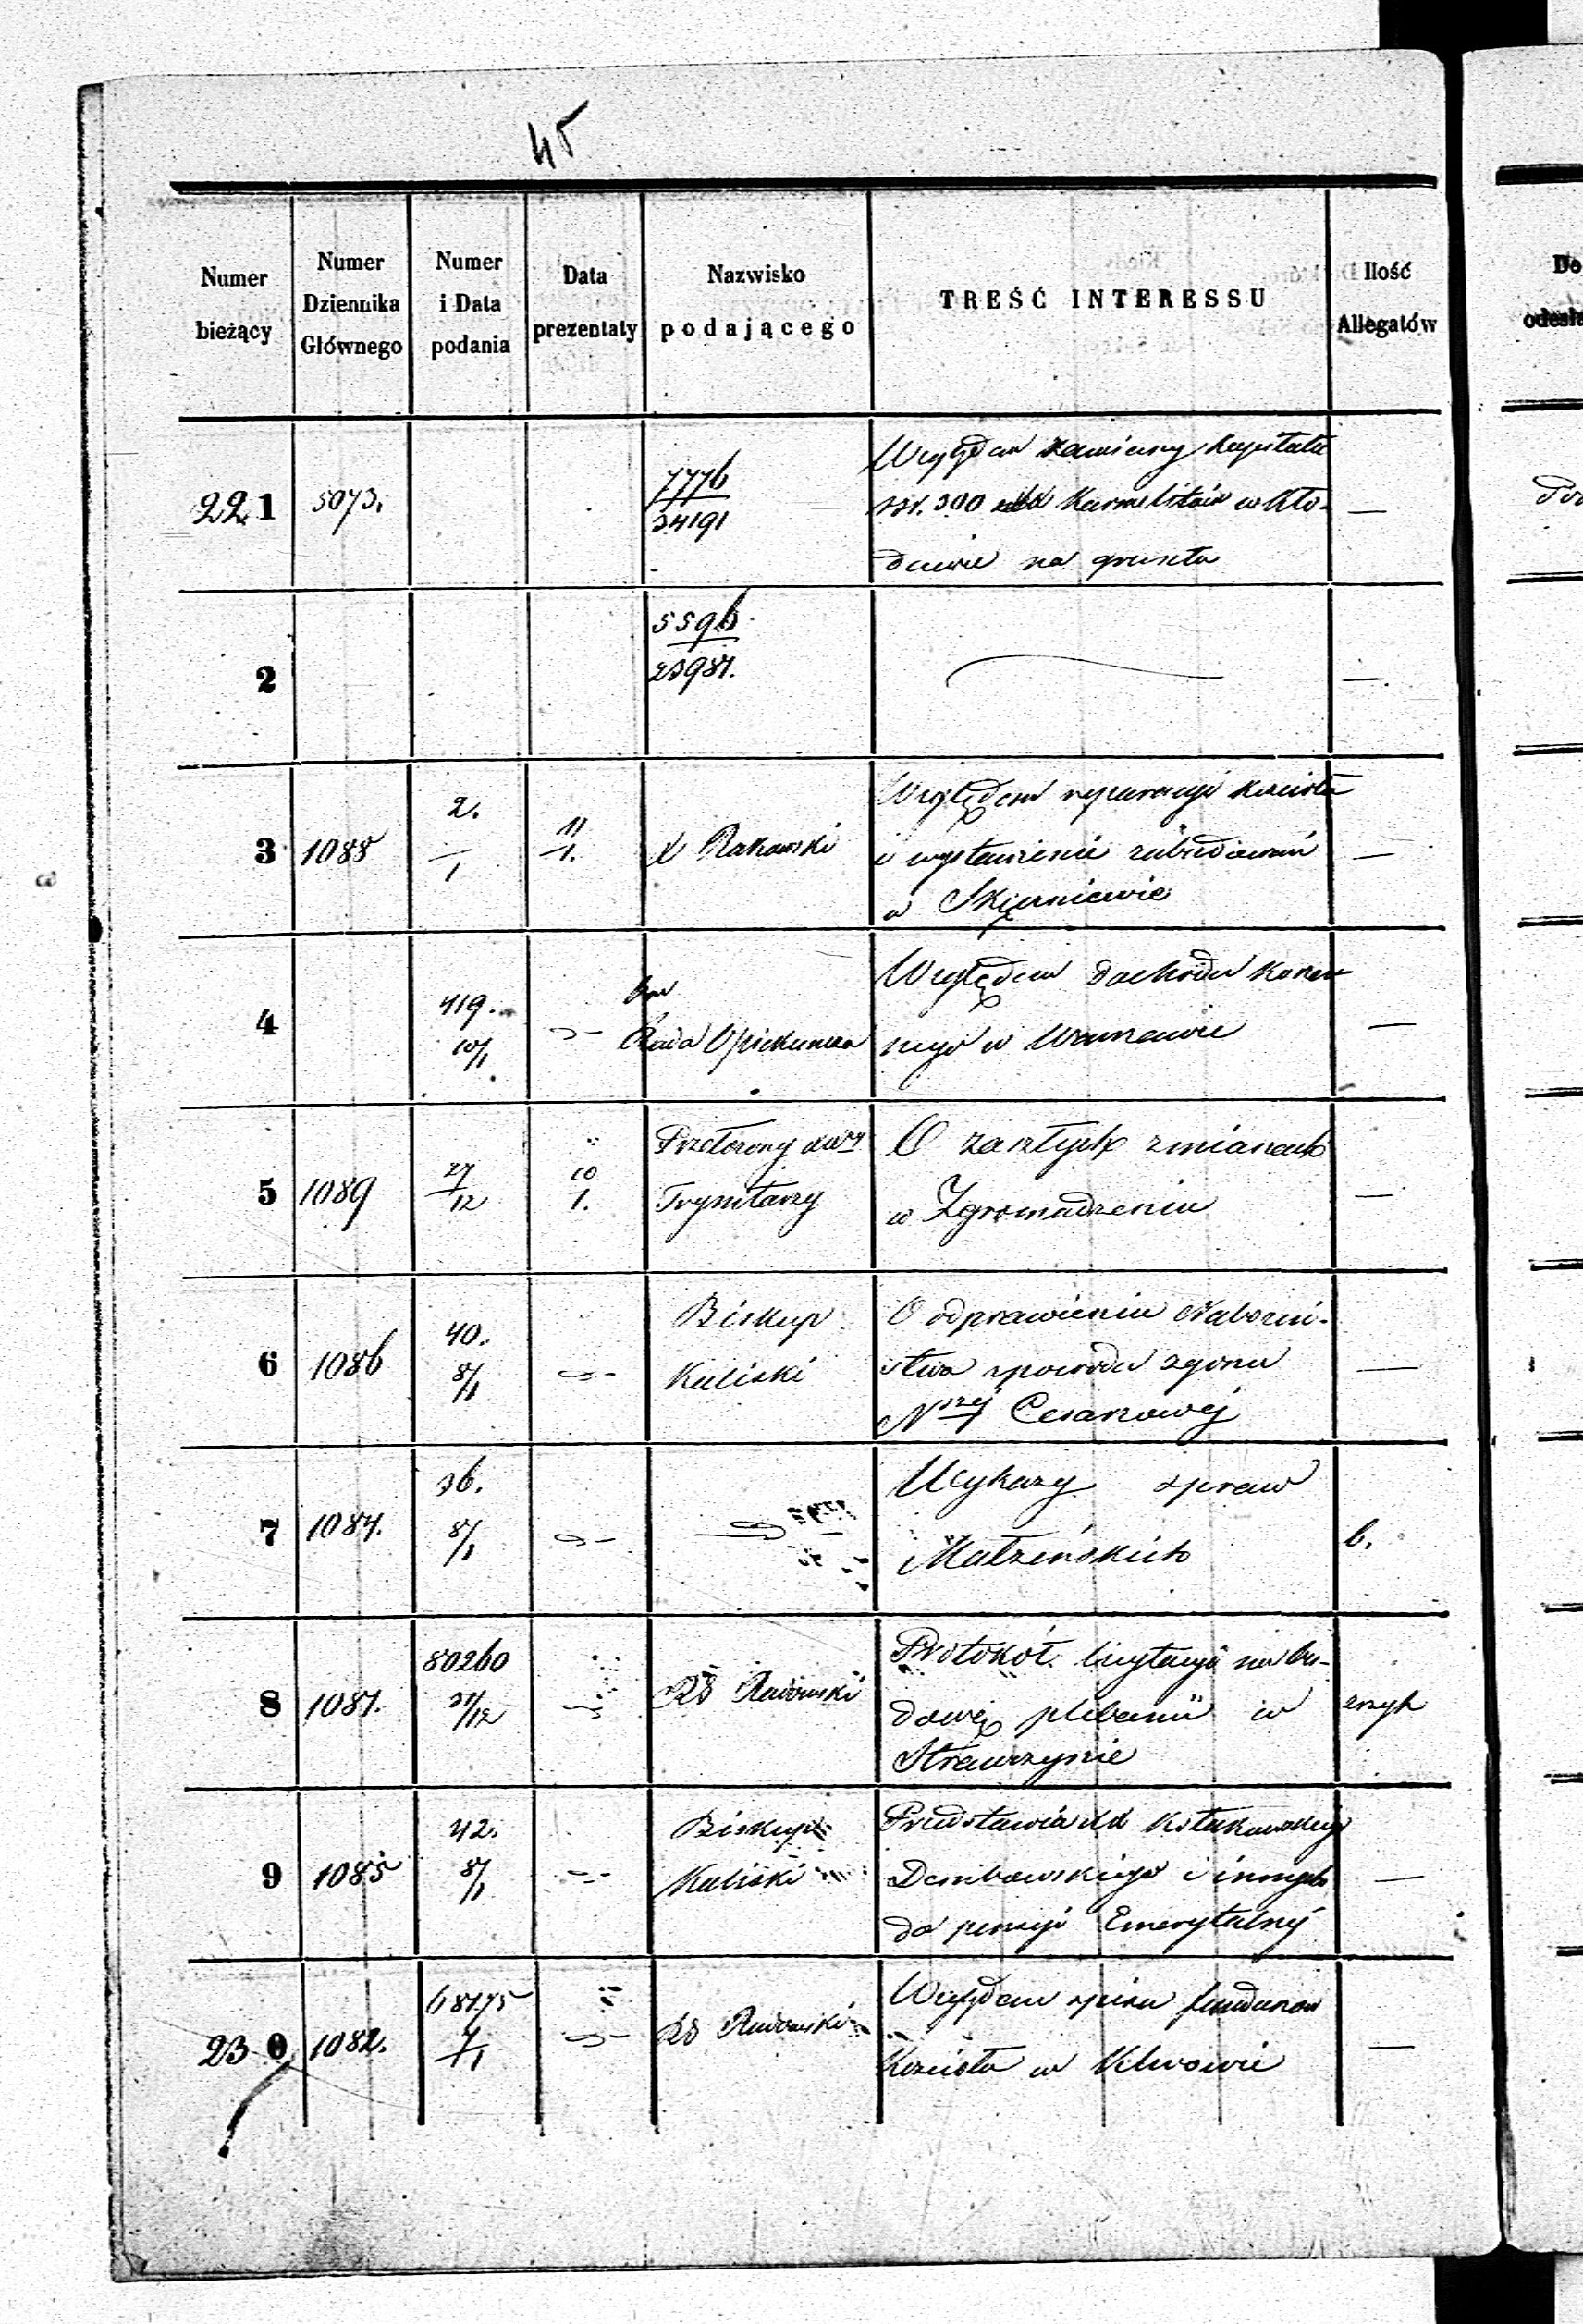 45
Numer bieżący
Numer Dziennika Głównego
Numer i Data podania
Data prezentaty
Nazwisko podającego
TREŚĆ INTERESSU
Ilość Allegatów
Do
221 5073. 7776/34191 —
Względem zamiany kapitału
rsr. 300 Karmelitów w Kło-
dawie na grunta
2 5596/23987. — —.
3 1088 2. —/1 11/1. X Rakowski —
Względem reperacyi kościoła
i wystawienie zabudowań
w Skierniewie
4 419. 10/1 Rada Opiekuńcza —
Względem dochodu
w Warszawie
5 1089 27/12 10/1. Przełożony
Trynitarzy —
O zaszłych zmianach
w Zgromadzeniu
6 1086 40. 8/1 Biskup
Kaliski —
O odprawieniu Nabożeń-
stwa spowodu zgonu
N szej Cesarzowéj
7 1084. 36. 8/1 6.
Wykazy spraw
Małżeńskich
8 1087. 80260 31/12 RG Radomski
Protokół licytacyi na bu-
dowę plebanii w zszyt
9 1085 42. 8/1 Biskup
Kaliski —
Przedstawia XX
Dembowskiego i innych
do pensyi Emerytalnéj
230 1082. 7/1 RG Radomski —
Względem spisu
Kościoła w Klwowie